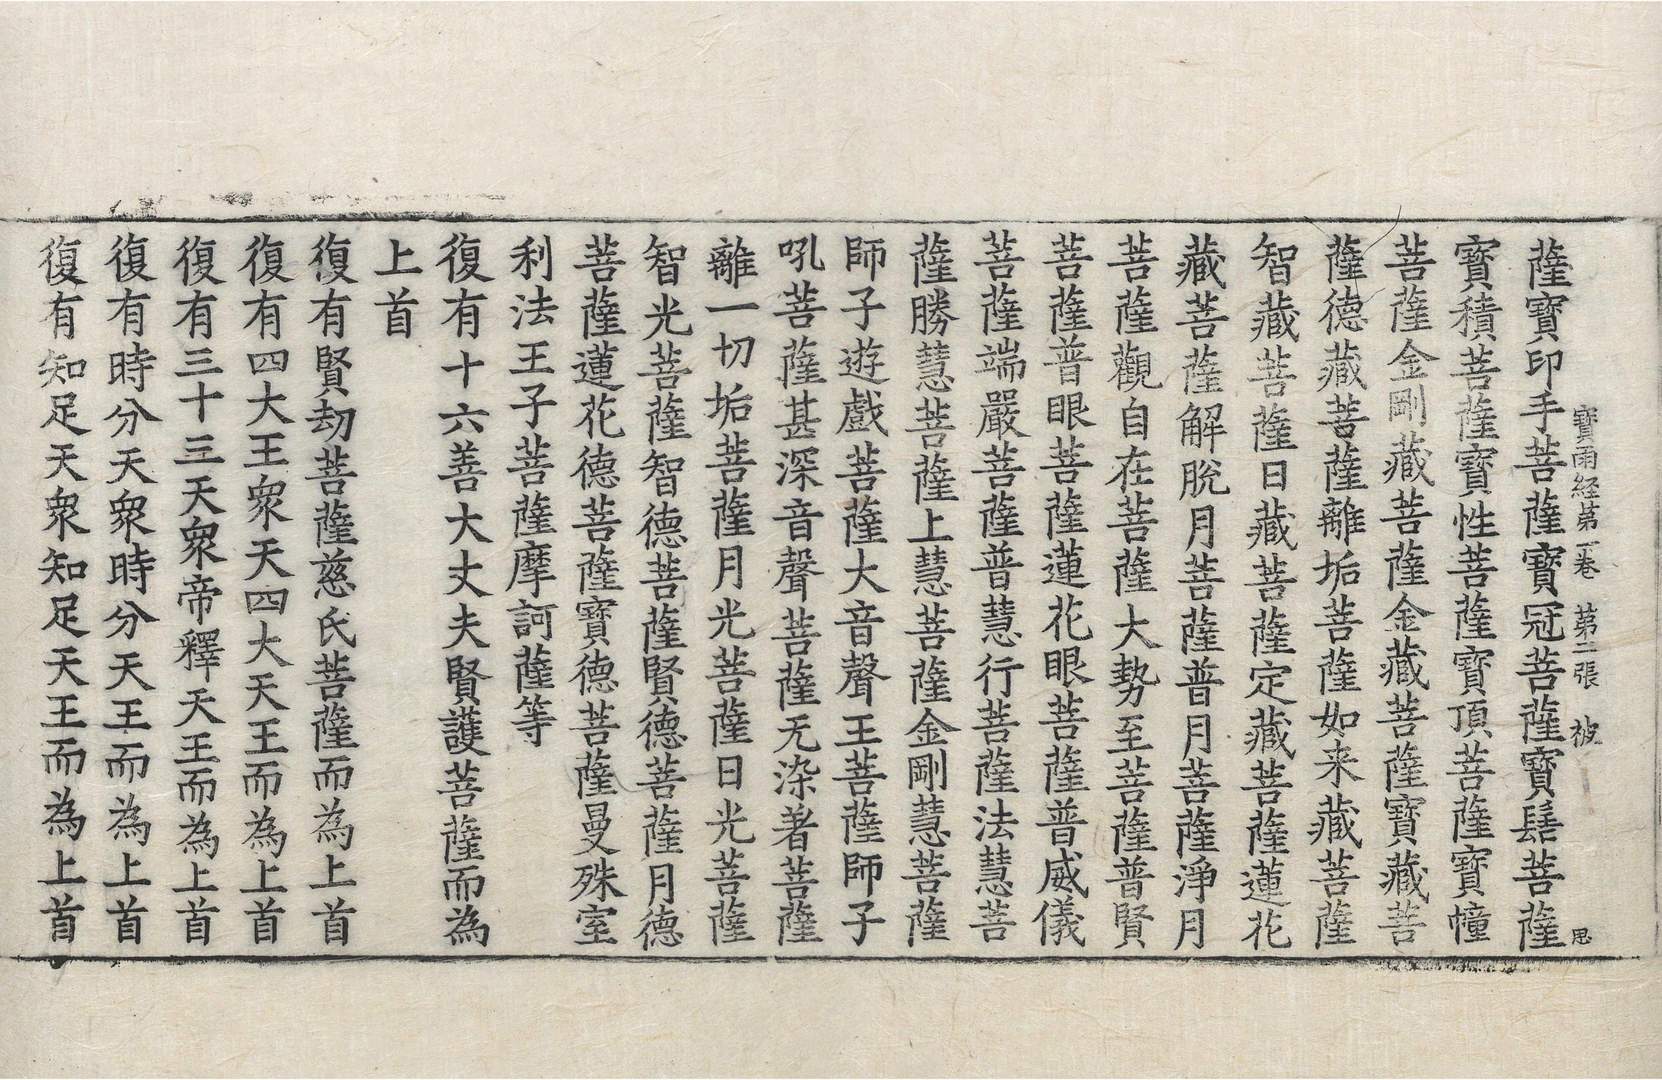 寶雨経第一卷　第二張　被　思
薩寶印手菩薩寶冠菩薩寶髻菩薩
寶積菩薩寶性菩薩寶頂菩薩寶幢
菩薩金剛藏菩薩金藏菩薩寶藏菩
薩德藏菩薩離垢菩薩如来藏菩薩
智藏菩薩日藏菩薩定藏菩薩蓮花
藏菩薩解脫月菩薩普月菩薩淨月
菩薩觀自在菩薩大勢至菩薩普賢
菩薩普眼菩薩蓮花眼菩薩普威儀
菩薩端嚴菩薩普慧行菩薩法慧菩
薩勝慧菩薩上慧菩薩金剛慧菩薩
師子遊戲菩薩大音聲王菩薩師子
吼菩薩甚深音聲菩薩无染著菩薩
離一切垢菩薩月光菩薩日光菩薩
智光菩薩智德菩薩賢德菩薩月德
菩薩蓮花德菩薩寶德菩薩曼殊室
利法王子菩薩摩訶薩等
復有十六善大丈夫賢護菩薩而為
上首
復有賢劫菩薩慈氏菩薩而為上首
復有四大王衆天四大天王而為上首
復有三十三天衆帝釋天王而為上首
復有時分天衆時分天王而為上首
復有知足天衆知足天王而為上首